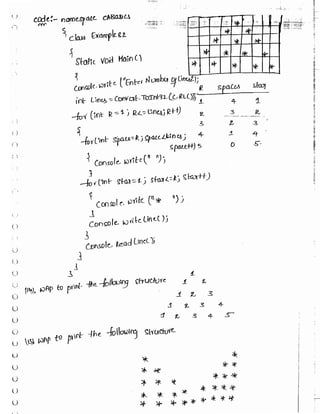 code:- namespace CABasics
{
class Example82
{
Static Void Main()
{
Console.write("Enter Number of Lines");
int Lines = Convert.ToInt32(C.RL());
for (int R=1; R<=Lines; R++)
{
for(int space=R; space<Lines;
space++)
{
Console.write(" ");
}
for(int star=1; star<=R; star++)
{
Console.write("*");
}
Console.writeLine();
}
Console.ReadLine();
}
}
}
R spaces star
1 4 1
2 3 2
3 2 3
4 1 4
5 0 5
WAP to print the following structure
1
1 2
1 2 3
1 2 3 4
1 2 3 4 5
WAP to print the following structure
* *
* * * *
* * * * * *
* * * * * * * *
* * * * * * * * * *